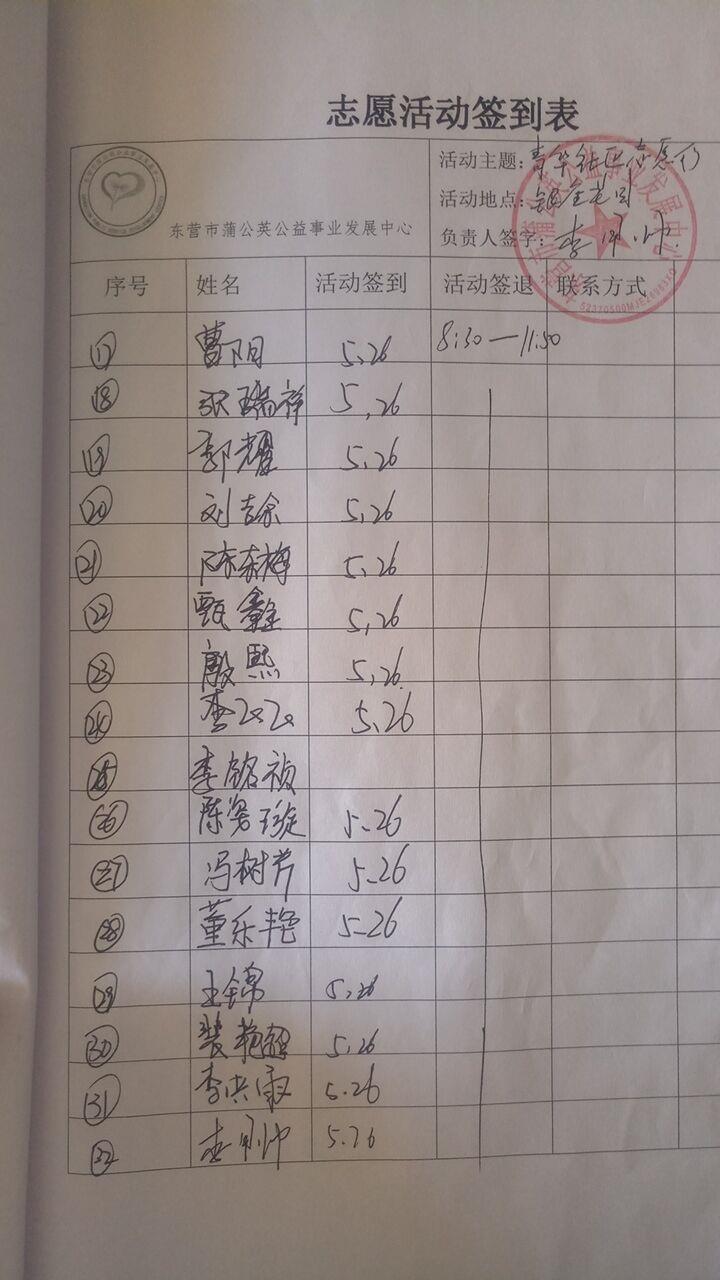 志愿活动签到表
东营市蒲公英公益事业发展中心
活动主题：青华社区志愿行
活动地点：
负责人签字：李刚帅
序号 姓名 活动签到 活动签退 联系方式
⑰ 曹阳 5.26 8:30—11:50
⑱ 张瑞祥 5.26
⑲ 郭耀 5.26
⑳ 刘吉余 5.26
㉑ 陈东梅 5.26
㉒ 甄鑫 5.26
㉓ 殷熙 5.26
㉔ 李双双 5.26
㉕ 李铭祯
㉖ 陈璇 5.26
㉗ 冯树芹 5.26
㉘ 董乐艳 5.26
㉙ 王锦 5.26
㉚ 裴艳超 5.26
㉛ 李洪霞 5.26
㉜ 李刚帅 5.26